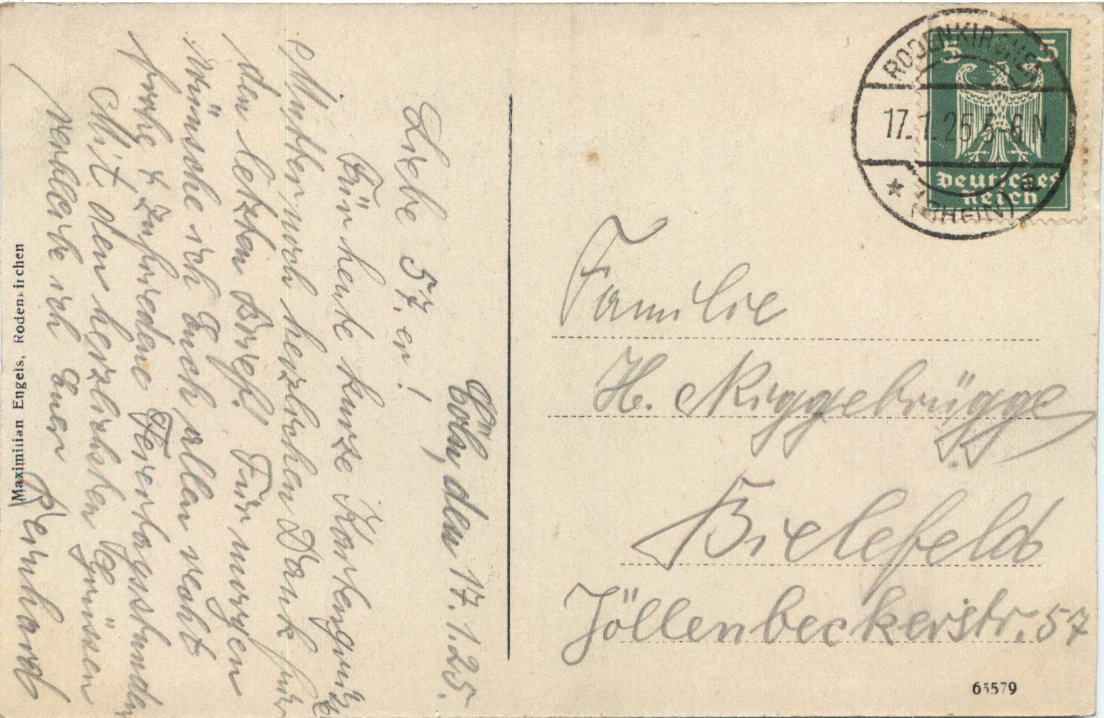 Cöln, den 17.1.25.
Liebe 57.er!
Für heute kurze Kartengrüße
Mutter noch herzlichen Dank für
den letzten Brief! Für morgen
wünsche ich Euch allen recht
frohe & zufriedene Feiertagsstunden
Mit den herzlichsten Grüssen
verbleibe ich Euer Reinhard
Maximilian Engels, Rodenkirchen
RODENKIRCHEN
17.1.25 5-6 N
* (RHEIN) a
5 5
Deutsches
Reich
Familie
H. Niggebrügge
Bielefeld
Jöllenbeckerstr. 57
65579